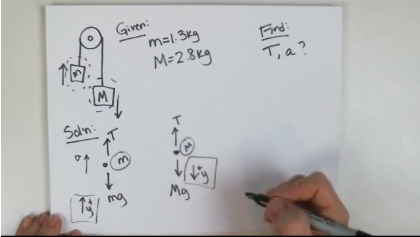 Given:
m=1.3kg
M=2.8kg
Find:
T, a?
m
M
Soln:
T
a
m
mg
+y
T
M
+y
Mg